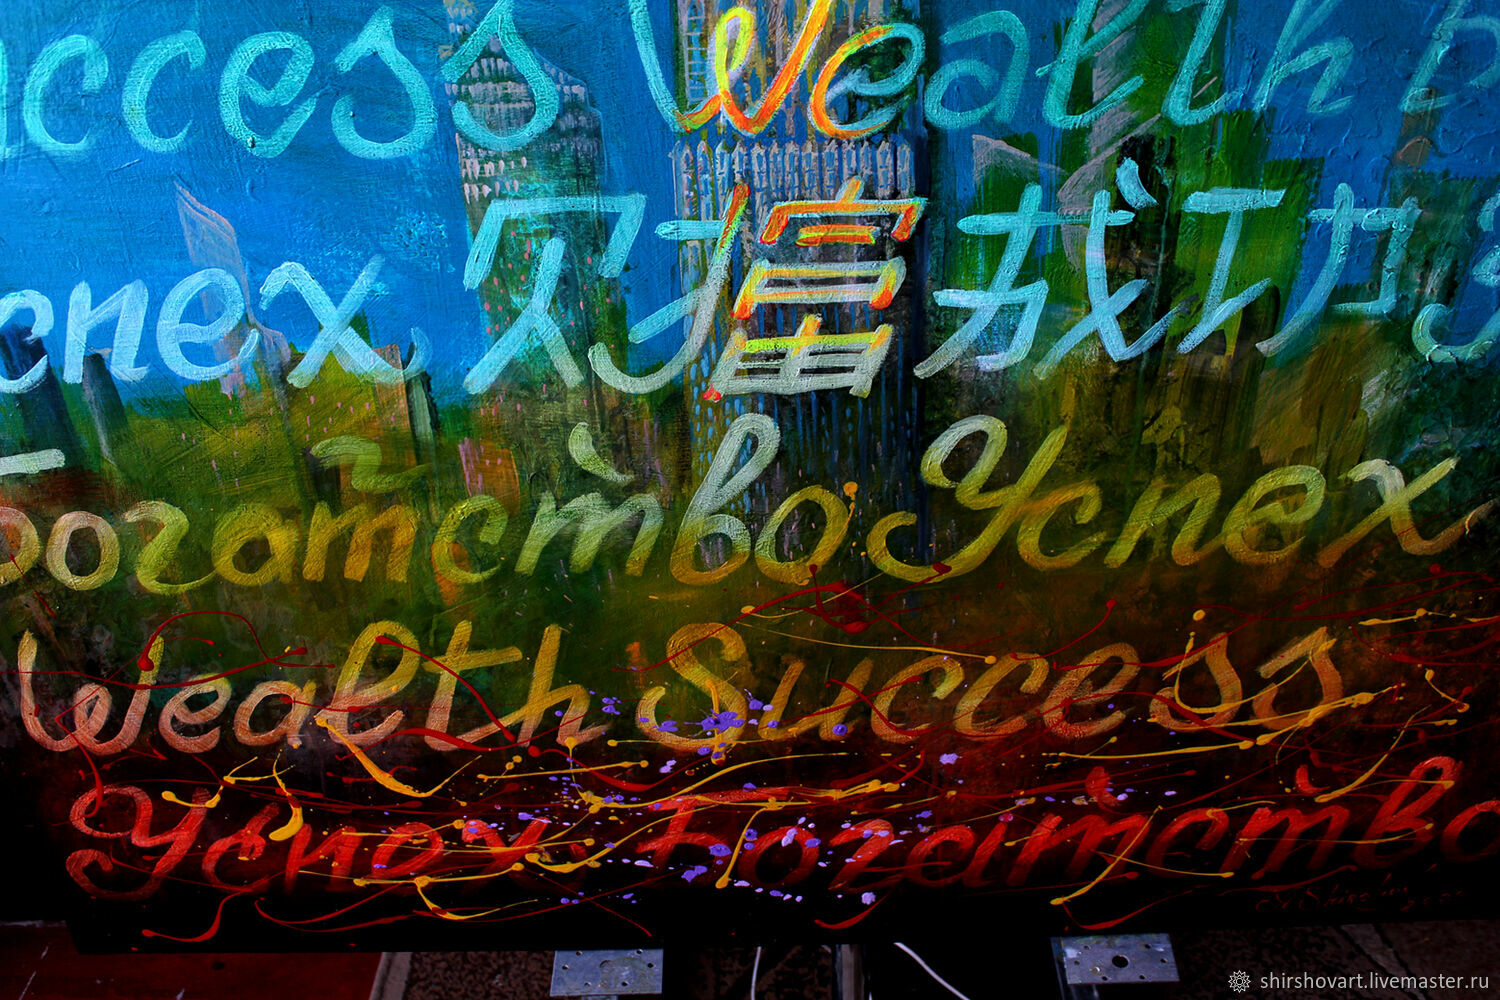 uccess Wealth
Успех 财富成功
Богатство Успех
Wealth Success
Успех Богатство
shirshovart.livemaster.ru